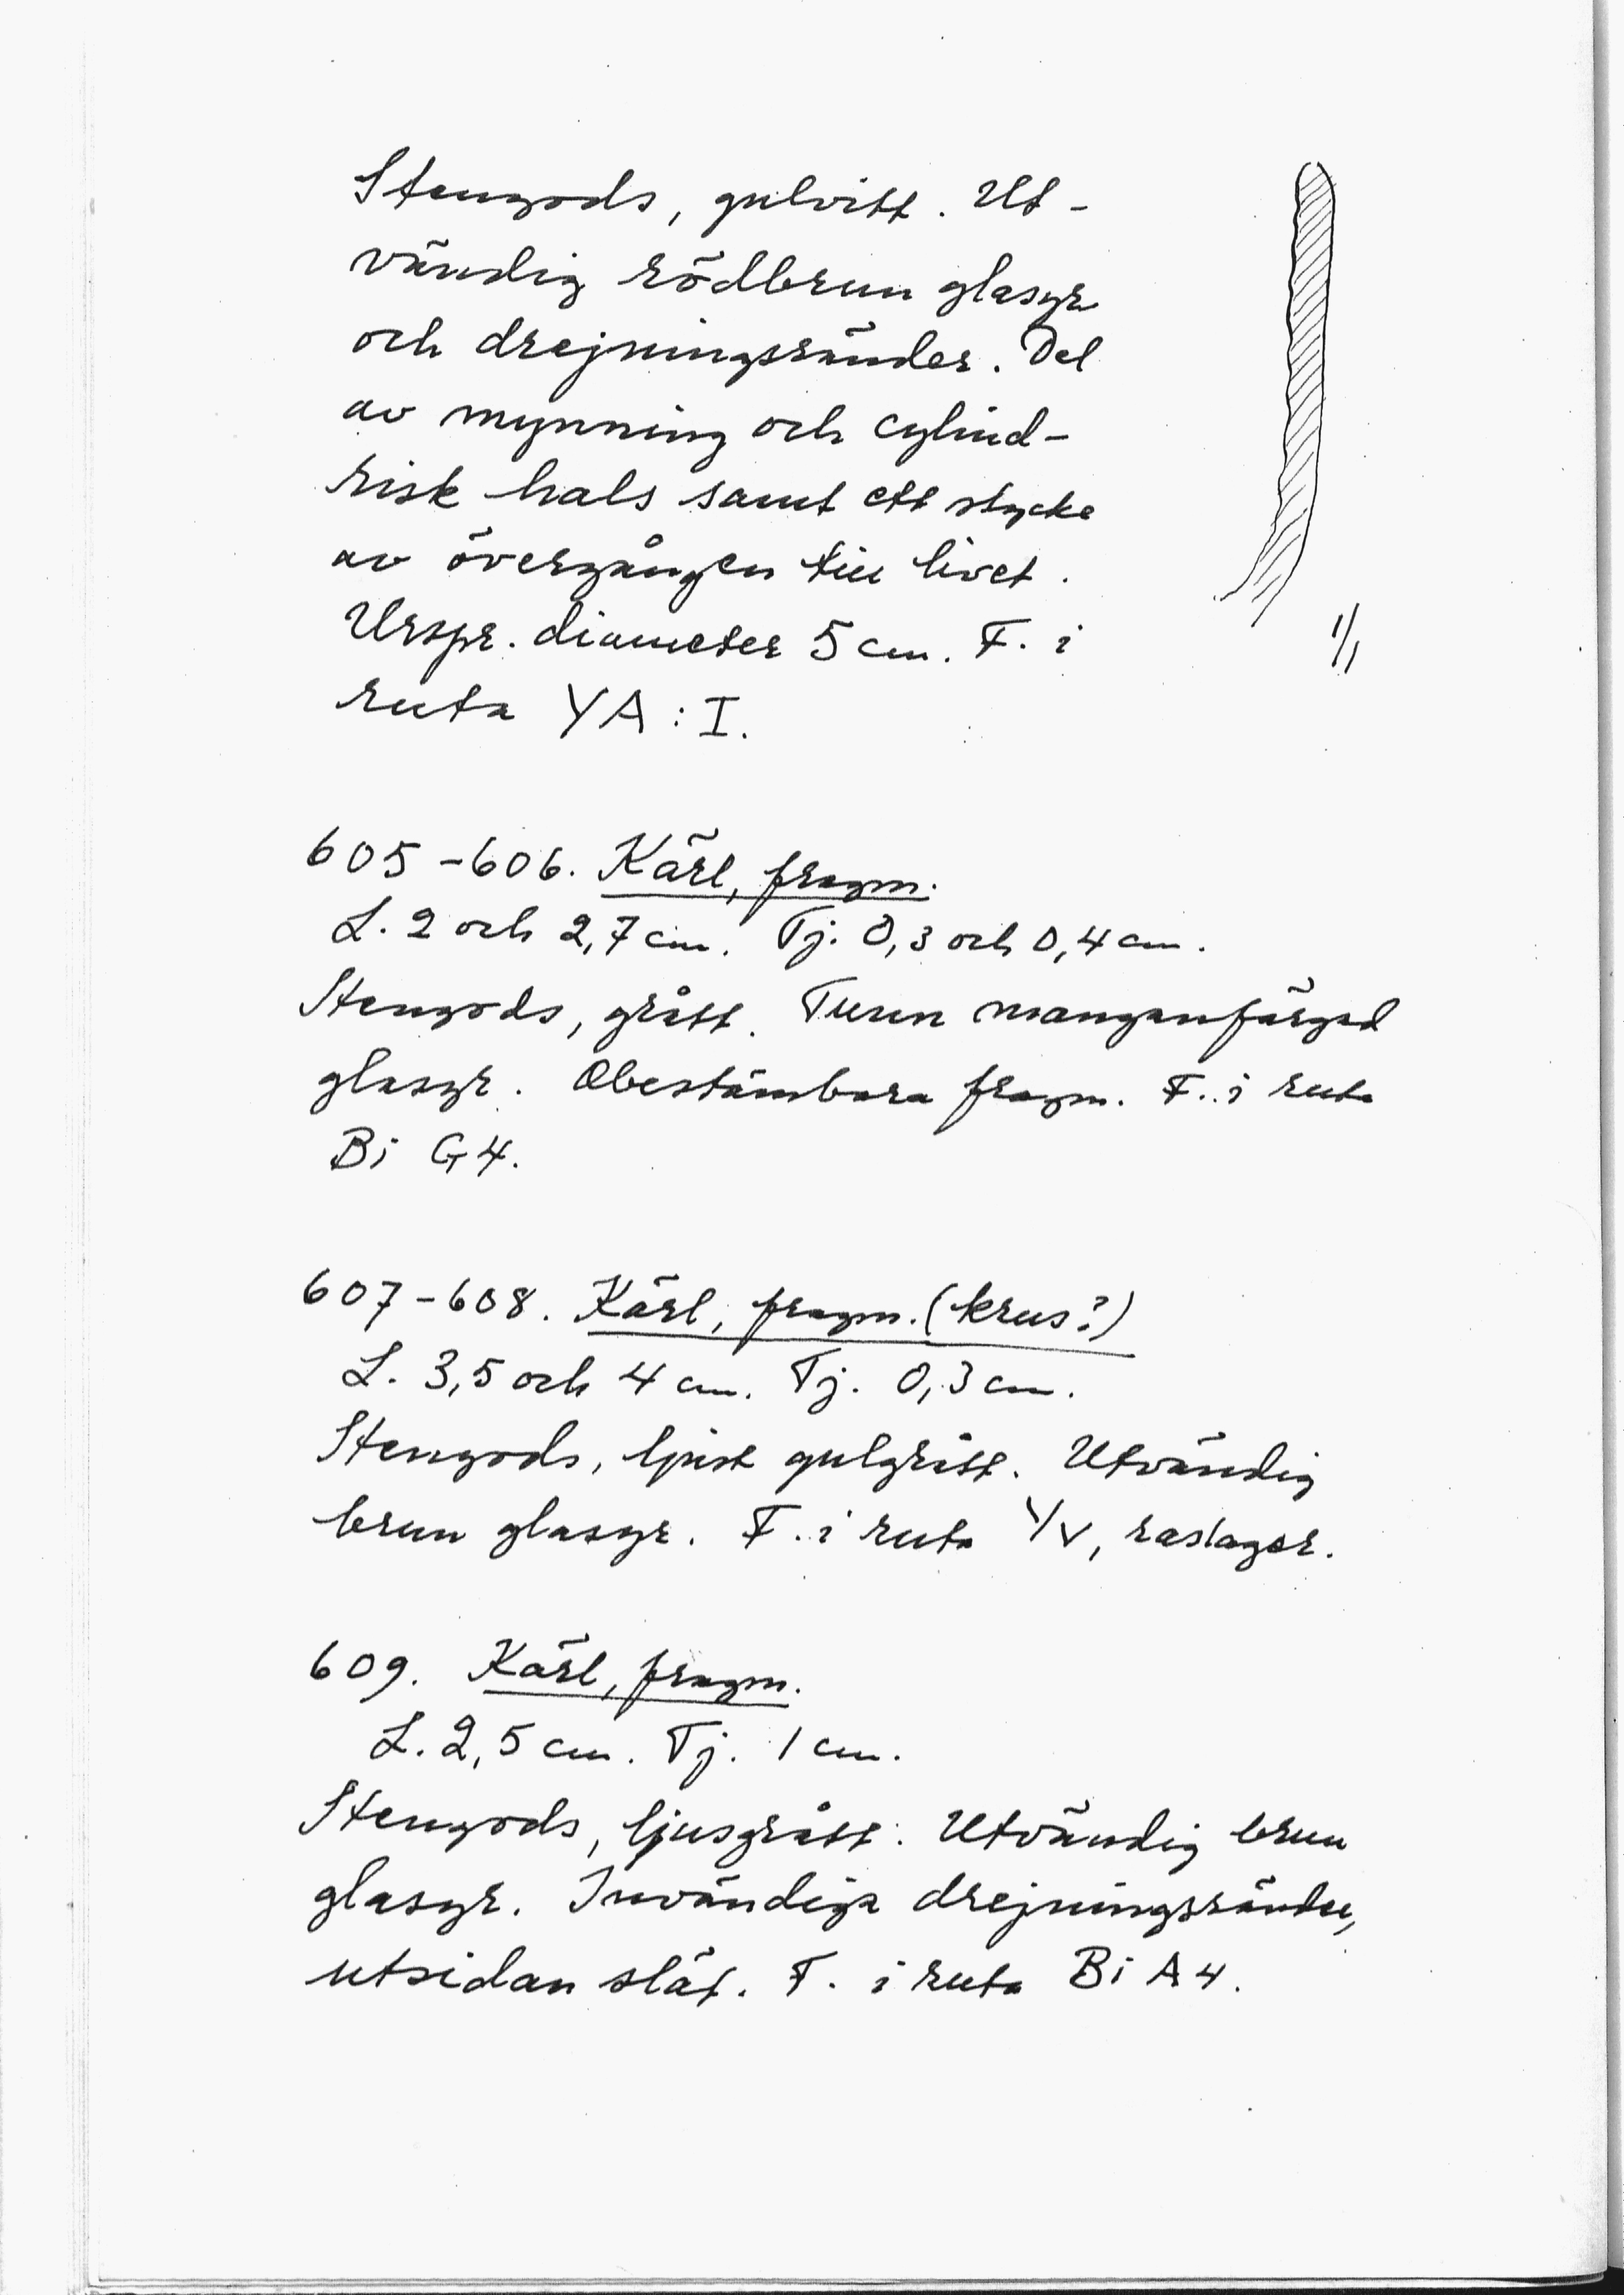 Stengods, gulvitt. Ut-
vändig rödbrun glasyr
och drejningsränder. Del
av mynning och cylind-
risk hals samt ett stycke
av övergången till livet.
Urspr. diameter 5 cm. F. i
ruta YA : I.
1/1
605-606. Kärl, fragm.
L. 2 och 2,7 cm. Tj. 0,3 och 0,4 cm.
Stengods, grått. Tunn manganfärgad
glasyr. Obestämbara fragm. F. i ruta
Bi G4.
607-608. Kärl, fragm. (krus?)
L. 3,5 och 4 cm. Tj. 0,3 cm.
Stengods, ljust gulgrått. Utvändig
brun glasyr. F. i ruta YV, raslager.
609. Kärl, fragm.
L. 2,5 cm. Tj. 1 cm.
Stengods, ljusgrått. Utvändig brun
glasyr. Invändiga drejningsränder,
utsidan slät. F. i ruta Bi A4.